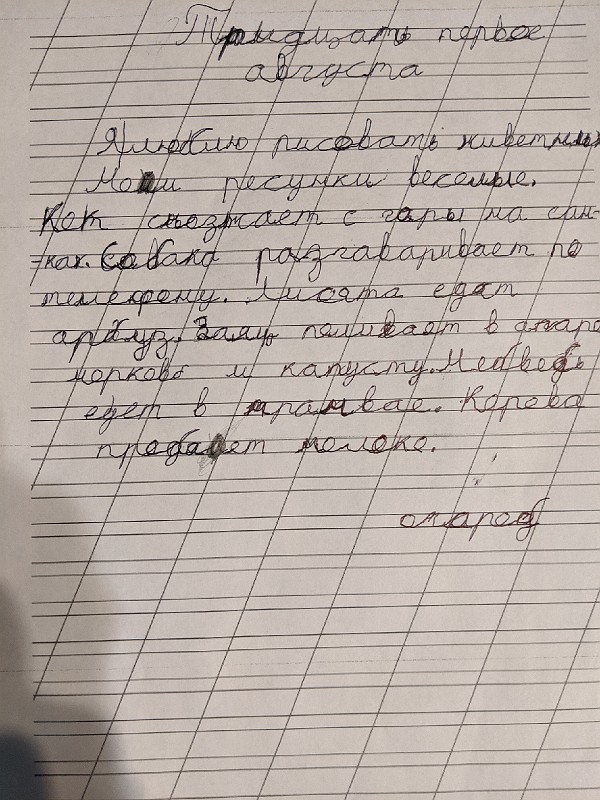 Тридцать первое
августа
Ялюблю рисовать живетных
Мои ресунки веселые.
Кот съозжает с гары на сан-
ках. Собака разгаваривает по
телефону. Лисята едят
арбуз. Заяц поливает в агаро
морковь и капусту. Медведь
едет в трамвае. Корова
продает молоко.
агарод